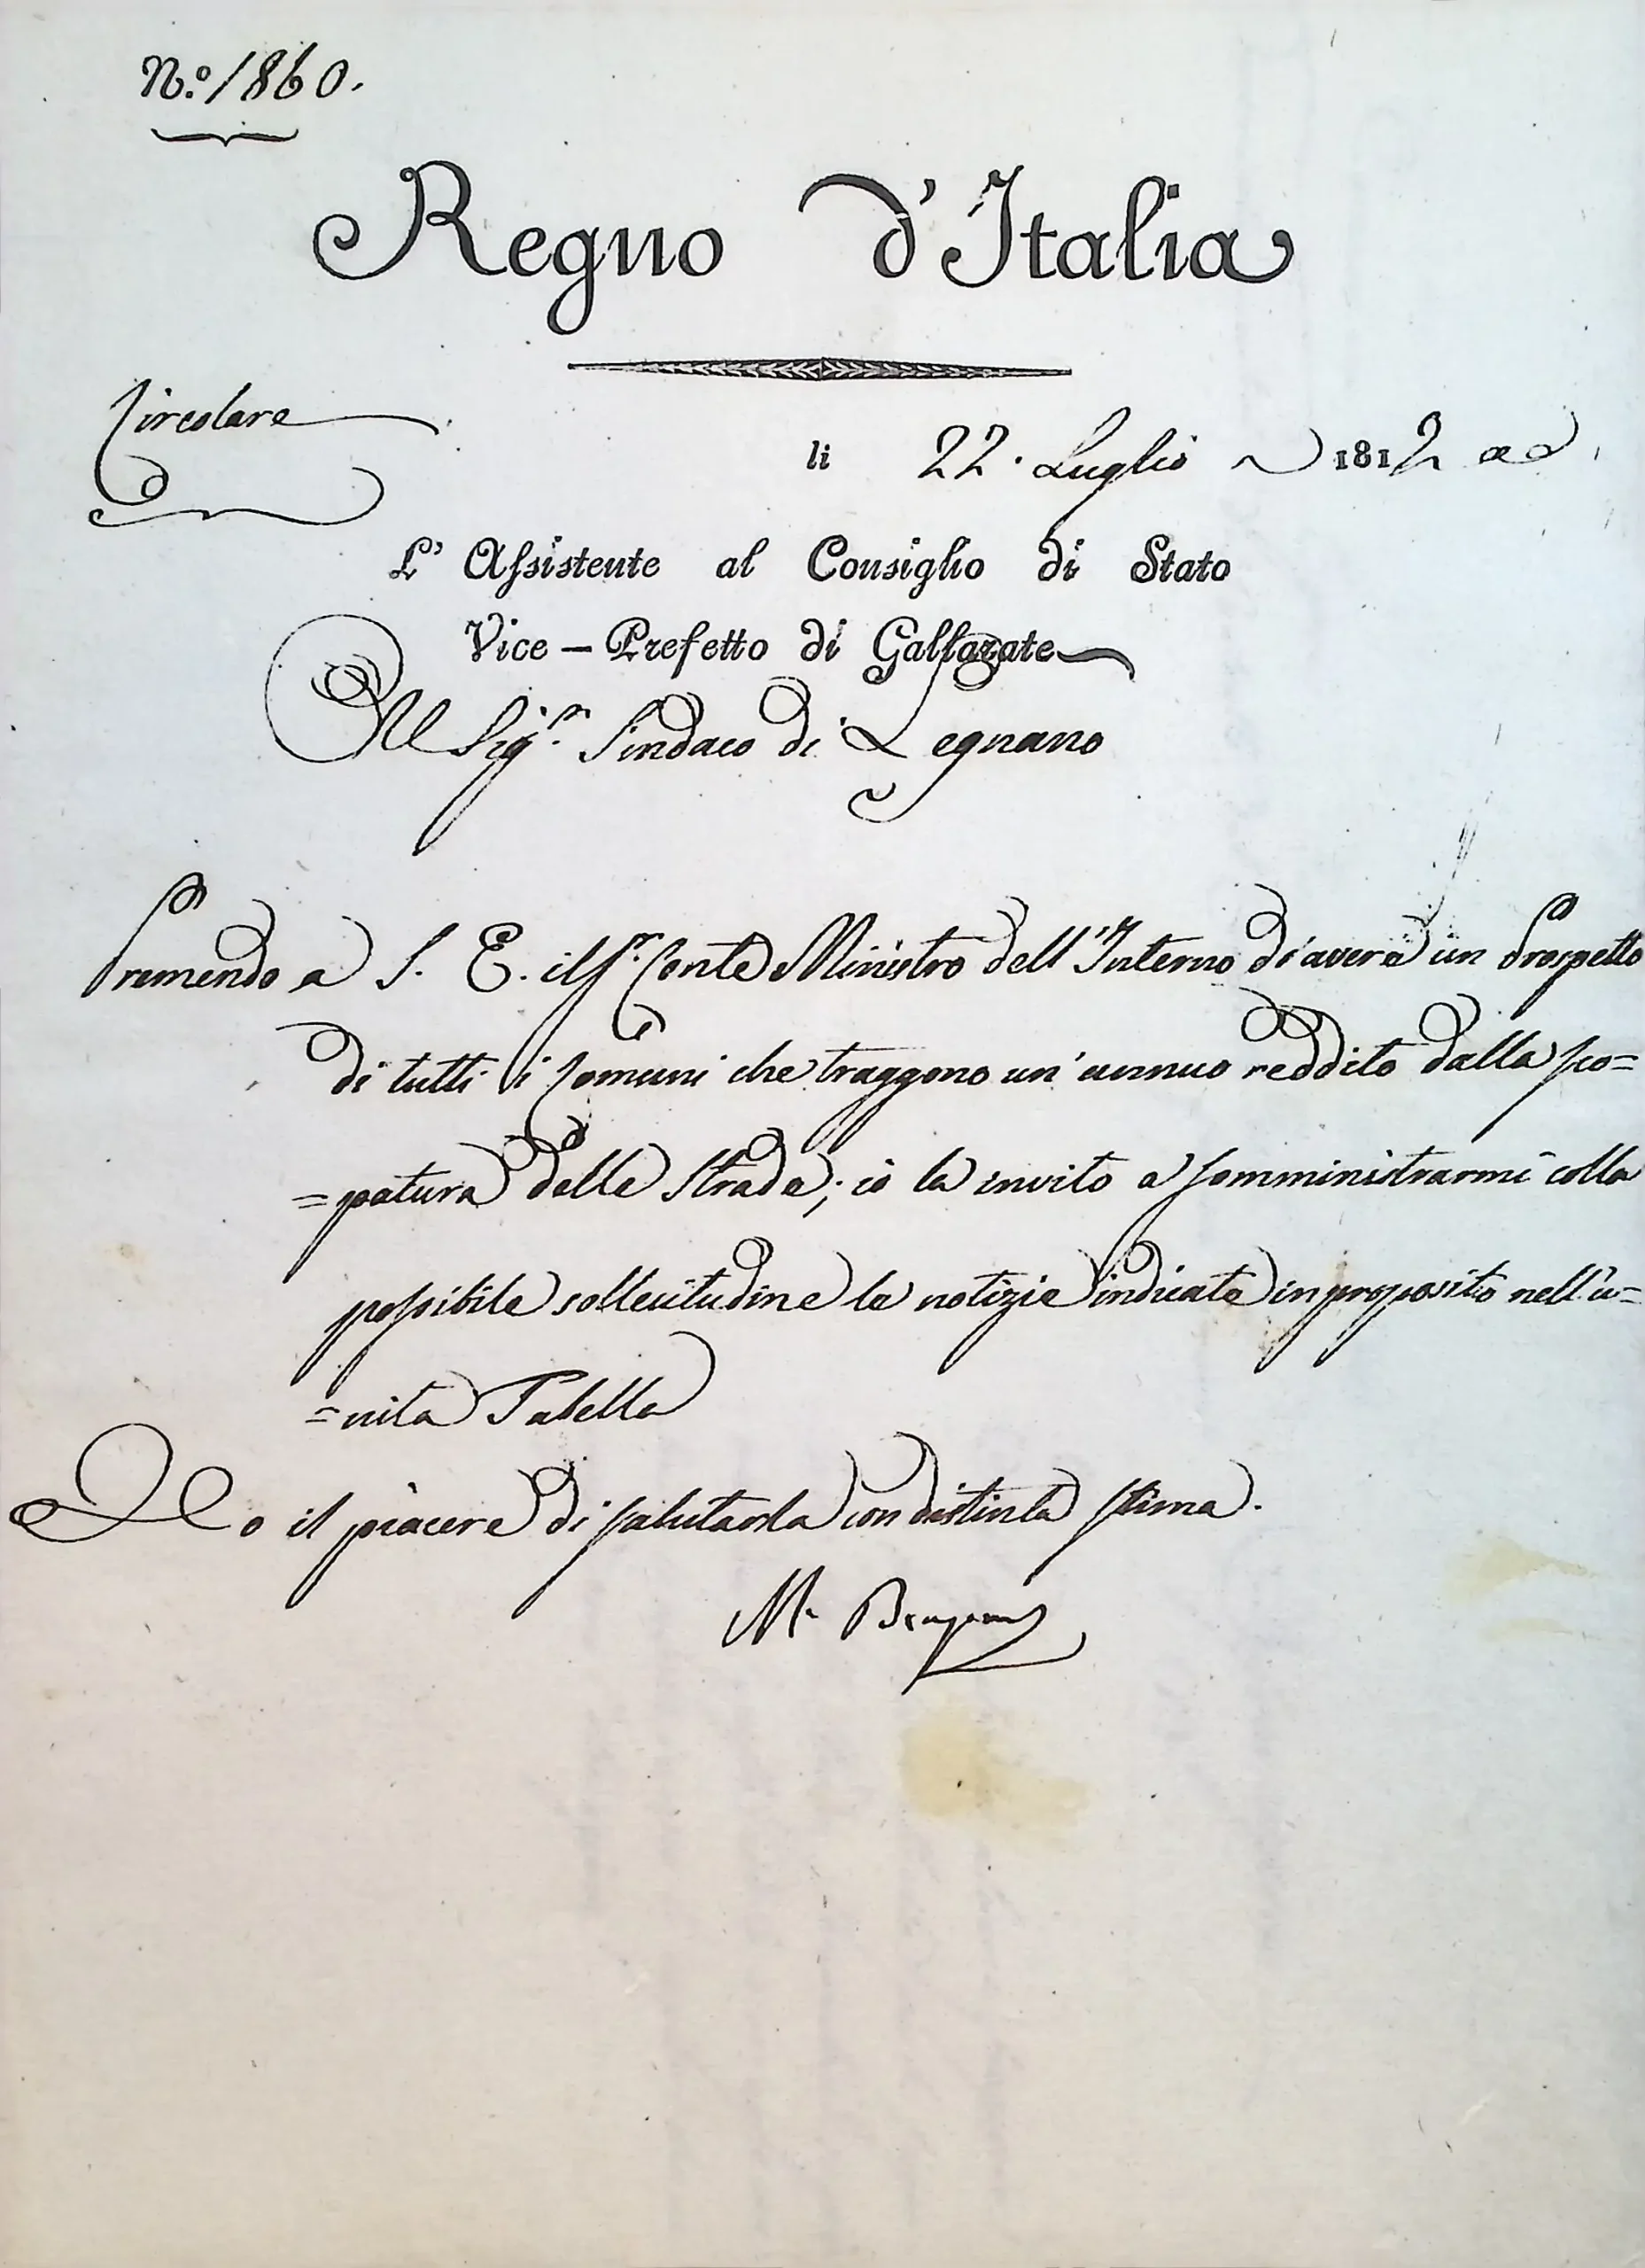 N.º 1860.
Regno d'Italia
Circolare
li 22. Luglio 1812
L' Assistente al Consiglio di Stato
Vice - Prefetto di Gallarate
Al Sig.r Sindaco di Legnano
Premendo a S. E. il S.r Conte Ministro dell'Interno di avere un Prospetto
di tutti i Comuni che traggono un'annuo reddito dalla sco=
=patura delle Strade; io la invito a somministrarmi colla
possibile sollecitudine le notizie indicate in proposito nell'u=
=nita Tabella
Ho il piacere di salutarla con distinta stima.
M.